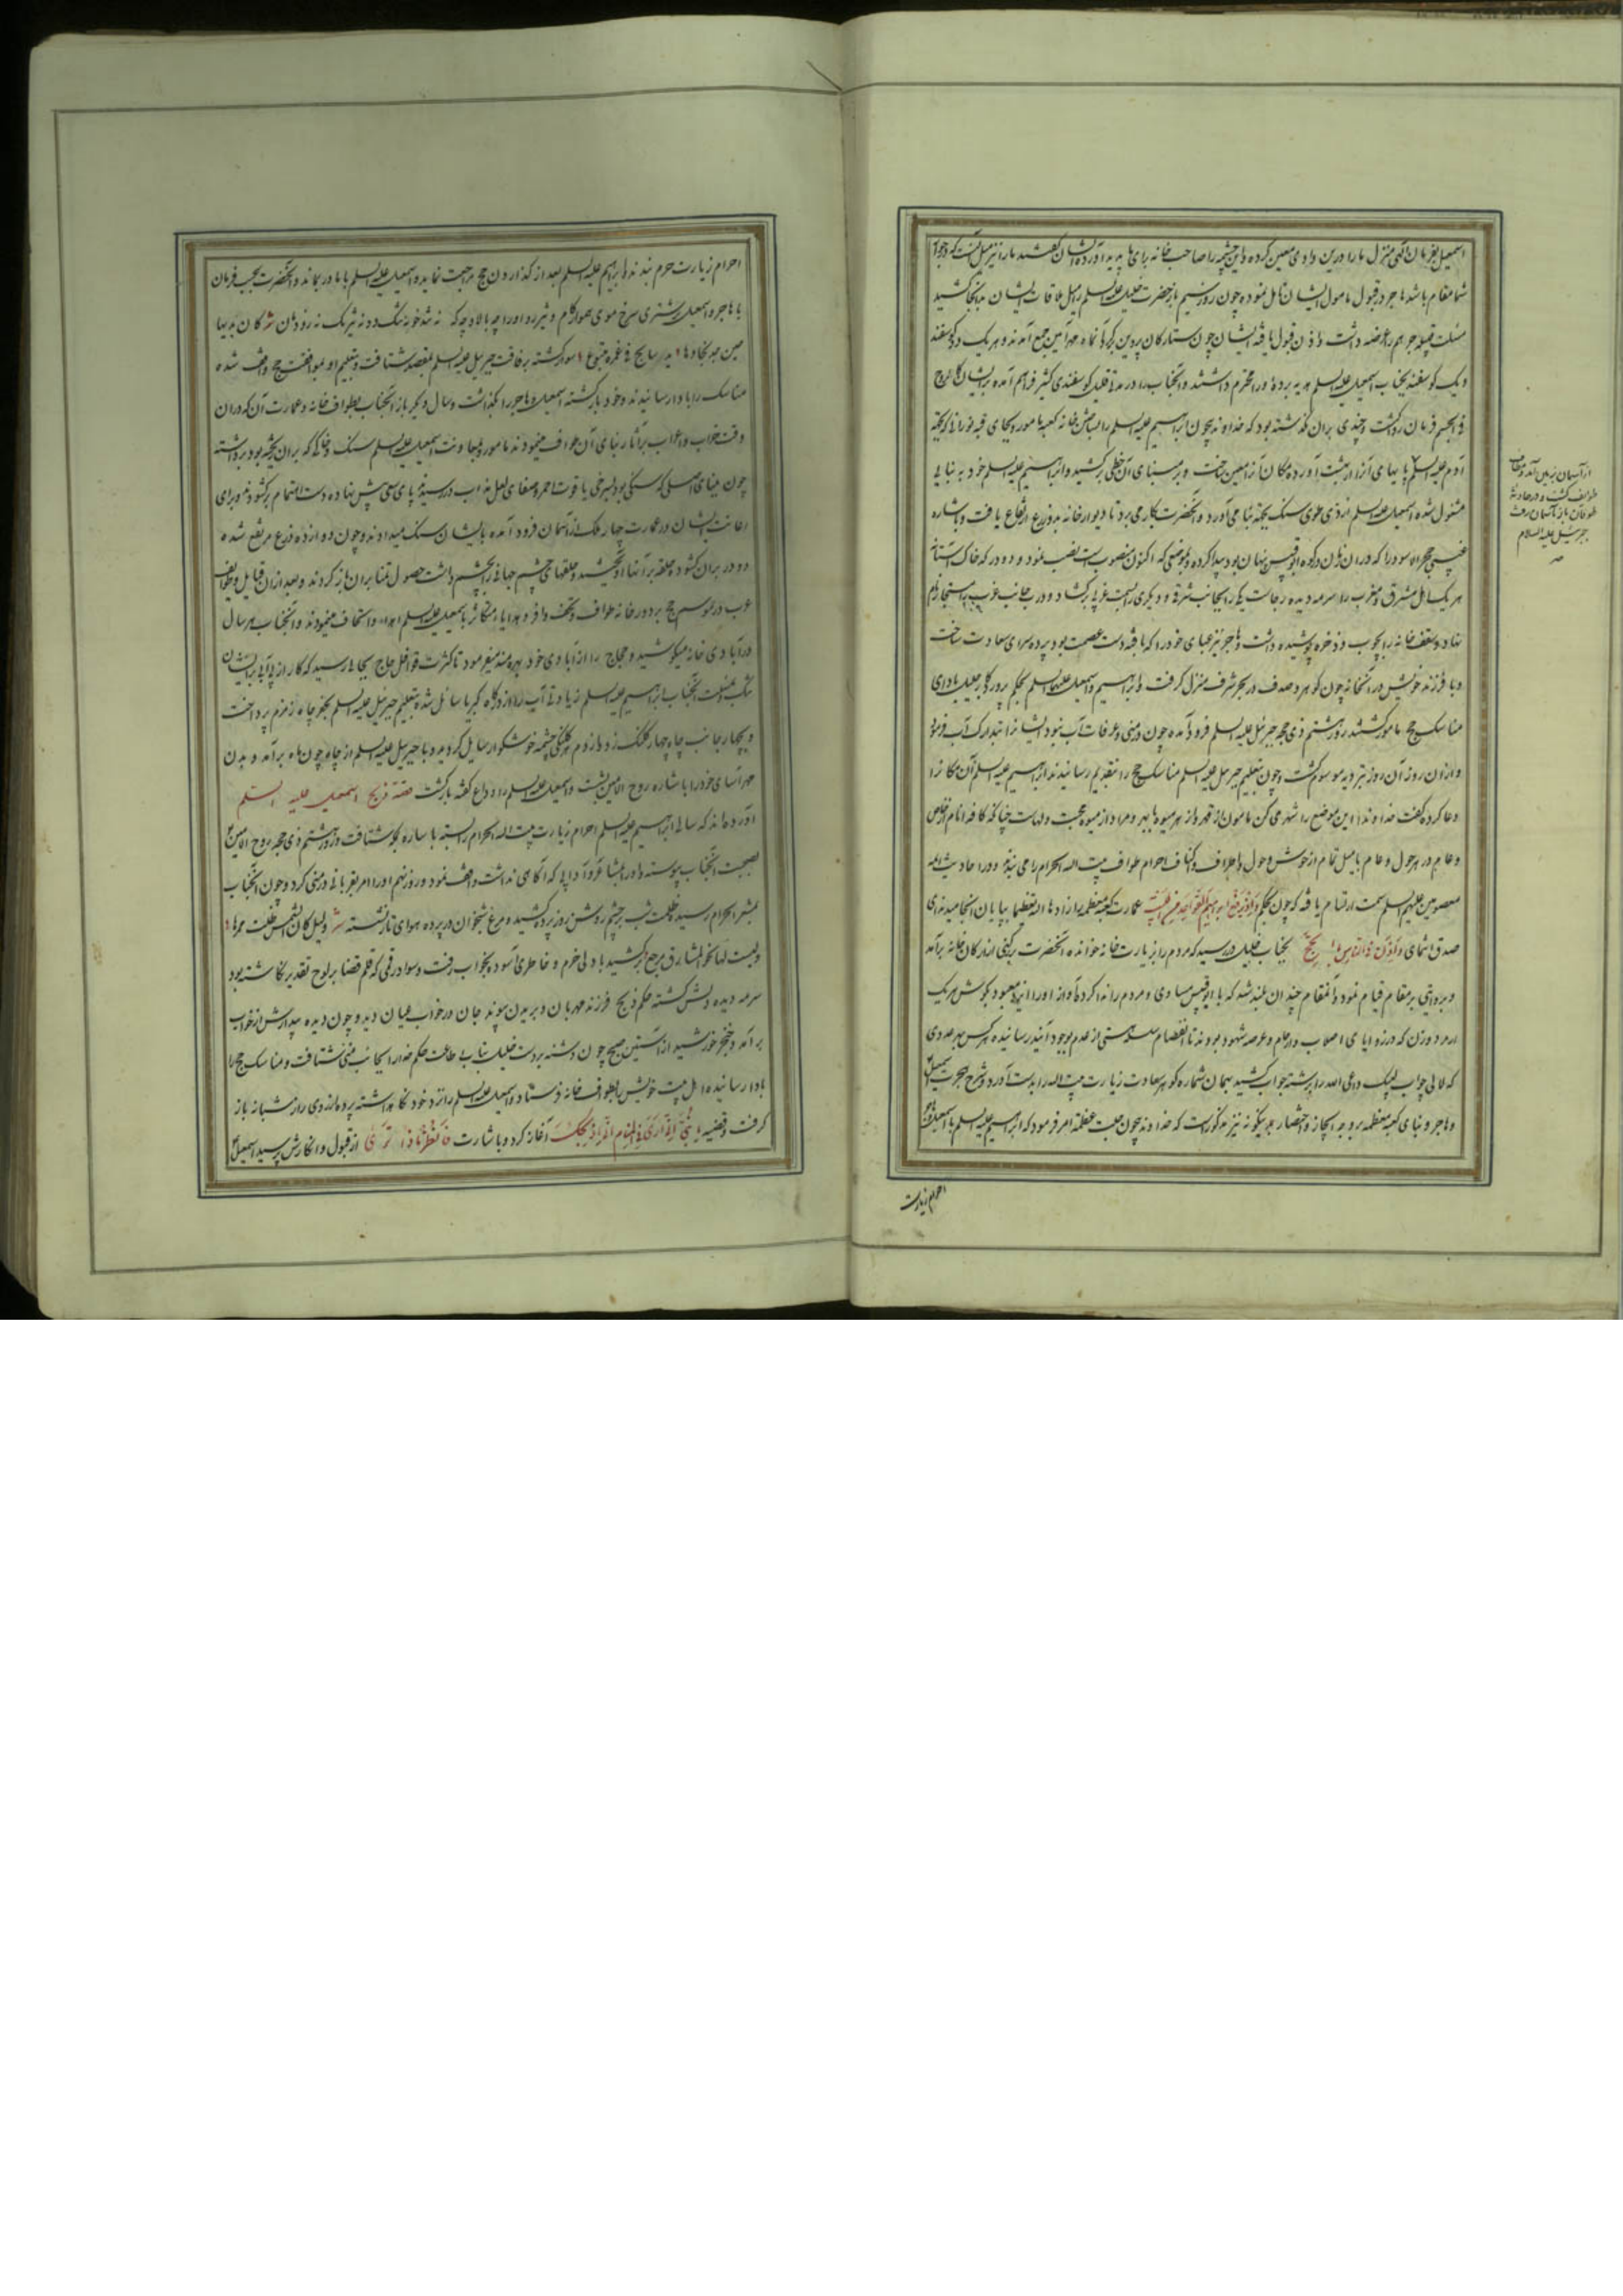 اسمعیل بفرمان الهی منزل ما را درین وادی معین کرده و این چشمه را صاحب خانه برای ما پدید آورده ایشان گفتند ما را نیز میل آنست که در جوار
شما مقام باشد هاجر در قبول مامول ایشان تامل نموده چون روز سیم باز حضرت خلیل علیه السلم بمیل ملاقات ایشان بدانجا کشید
مسئلت قبیله جرهم بعرضه داشت و اذن قبول یافته ایشان چون ستارکان پروین بر کرد آن ماه مهر آیین جمع آمدند و هر یک دو کوسفند
و یک کوسفند بجناب اسمعیل علیه السلم هدیه برده و را محترم داشتند و آنجناب را در مدتی قلیل کوسفندی کثیر فراهم آمده
فی الجسم فرمان روا کشت و چندی بران کذشته بود که خداوند بیچون ابراهیم علیه السلم را بساختن خانه کعبه مامور و بجای قبه نورانی که بجهة
آدم علیه السلم
مشغول شده اسمعیل علیه السلم از ذی طوی سنک بجهة بنا می آورد و آنحضرت بکار می برد تا دیوار خانه به نه ذرع ارتفاع یافت و باشاره
غیبی حجر الاسود را که دران زمان در کوه ابو قبیس پنهان بود پیدا کرده بموضعی که اکنون منصوب است نصب نمود و دو در که خاک آستانه
هر یک اهل مشرق و مغرب را سرمه دیده رجاست یکی را بجانب شرقی و دیکری را بسمت غربی برکشاد و در جانب غربی مستجار نام
نهاد و سقف خانه را بچوب و اذخره پوشیده داشت و هاجر نیز عبای خود را که بافته دست عصمت بود پرده سرای سعادت ساخت
و با فرزند خویش در آنخانه چون کوهر و صدف در بحر شرف منزل کرفت و ابراهیم و اسمعیل علیهما السلم بحکم پروردکار جلیل باداری
مناسک حج مامور کشتند روز هشتم ذی حجه جبرئیل علیه السلم فرود آمده چون در منی و عرفات آب نبود ایشانرا بتدارک آب فرمود
و ازان روز آن روز بترویه موسوم کشت و چون بتعلیم جبرئیل علیه السلم مناسک حج را بتقدیم رسانیدند ابراهیم علیه السلم آن مکانرا
دعا کرده کفت خداوندا این موضع را شهر می کن مامون از قهر و از هر میوه
و عام در هر حول و عام بامیل تمام از خوش و حول و اطراف و اکناف احرام طواف بیت الله الحرام را می بندند و در احادیث ائمه
معصومین علیهم السلم سمت ارتسام یافته که چون بحکم و اذ یرفع ابراهیم القواعد من البیت عمارت کعبه معظمه زادها الله تعظیما بپایان انجامید ندای
صدق انتمای و اذن فی الناس بالحج بجناب خلیل در رسید که مردم را بزیارت خانه خوانده آنحضرت بر رکنی از ارکان خانه برآمد
و بروایتی بر مقام قیام نمود و آنمقام چندان بلند شد که با ابو قبیس مساوی و مردم را ندا کرد و آواز او را ایزد معبود بکوش هر یک
از مرد و زن که در زوایای اصلاب و ارحام و عرصه شهود بودند تا انفصام سلسله هستی از عدم بوجود آیند رسانیده هر کس بهر عددی
که لآلی جواب لبیک داعی الله را برشته جواب کشید بهمان شماره کوهر سعادت زیارت بیت الله را بدست آورد و شرح هجرت اسمعیل
و هاجر و بنای کعبه معظمه بر وجه ایجاز و اختصار بدینکونه نیز مذکورست که خداوند بیچون جلت عظمته امر فرمود که ابراهیم علیه السلم با اسمعیل و هاجر
احرام زیارت
از آسمان بزمین آمد و مطاف
طوایف کشت و در حادثه
طوفان باز بآسمان رفت
جبرئیل علیه السلام
احرام زیارت حرم بندند و ابراهیم علیه السلم بعد از کذاردن حج مراجعت نماید و اسمعیل علیه السلم با مادر بماند و آنحضرت بموجب فرمان
با هاجر و اسمعیل بر شتری سرخ موی هموار کام
سوار کشته برفاقت جبرئیل علیه السلم بمقصد شتافت و بتعلیم او بموافقت حج واقف شده
مناسک را بادا رسانیدند و خود بازکشته اسمعیل و هاجر را کذاشت و سال دیکر باز آنجناب بطواف خانه و عمارت آن که دران
وقت خراب و اعراب بر آثار بنای آن طواف مینمودند مامور و بمعاونت اسمعیل علیه السلم سنک و خاکی که بران ریخته بود برداشته
چون بینای اصلی که سنکی بود بسرخی یاقوت احمر و صفای لعل مذاب در رسیدند پای سعی پیش نهاده دست اهتمام برکشودند و برای
اعانت ایشان در عمارت چهار ملک از آسمان فرود آمده بایشان سنک میدادند و چون دوازده ذرع مرتفع شده
دو در بران کشود و حلقه برآنها آویختند و حلقهای چشم جهانی را بچشم داشت حصول تمنا بران باز کردند و بعد ازان قبایل و طوایف
عرب در موسم حج بر دور خانه طواف و تحف وافر و هدایاء متکاثر باسمعیل علیه السلم اهداء و اتحاف مینمودند و آنجناب هر سال
در آبادی خانه میکوشید و حجاج را از آبادی خود بهره مند میفرمود تا کثرت قوافل حاج بجائی رسید که کار از بی آبی بر ایشان
تنک بمسئلت آنجناب ابراهیم علیه السلم زیادتی آب را از درکاه کبریا سائل شده بتعلیم جبرئیل علیه السلم بحفر چاه زمزم پرداخت
و بچهار جانب چاه چهار کلنک زد و از دم هر کلنکی چشمه خوشکوار سایل کردید و با جبرئیل علیه السلم از چاه چون ماه برآمد و بدن
مهر آسای خود را باشاره روح الامین بشست و اسمعیل علیه السلم را وداع کفته بازکشت قصه ذبح اسمعیل علیه السلم
آورده اند که سالی ابراهیم علیه السلم احرام زیارت بیت الله الحرام را بسته با ساره بمکه شتافت و در روز هشتم ذی حجه روح الامین
بصحبت آنجناب پیوسته و او را بمشاعر و آدابی که آکاهی نداشت واقف نمود و روز نهم او را امر بقربانی در منی کرد و چون آنجناب
بمشعر الحرام رسید ظلمت شب بر چشم روشن روز پرده کشید و مرغ شبخوان در پرده هوای تار نشست
ولیست لها نحو المشارق مرجع برکشید با دلی خرم و خاطری آسوده بخواب رفت و سوادرقمی که قلم قضا بر لوح تقدیر نکاشته بود
سرمه دیده دلش کشته حکم ذبح فرزند مهربان و بریدن پیوند جان در خواب عیان دید و چون دیده بیدارش از خواب
برآمد و خنجر خورشید از آستین صبح چون دشنه بر دست خلیل بنا بر طاعت حکم خدا از انجا بمنی شتافت و مناسک حج را
بادا رسانیده اهل بیت خویش را بطواف خانه فرستاد و اسمعیل علیه السلم را نزد خود نکاهداشته پرده از روی راز شبانه باز
کرفت و قضیه یا بنی انی اری فی المنام انی اذبحک آغاز کرد و باشارت فانظر ماذا تری از قبول و انکارش پرسید اسمعیل